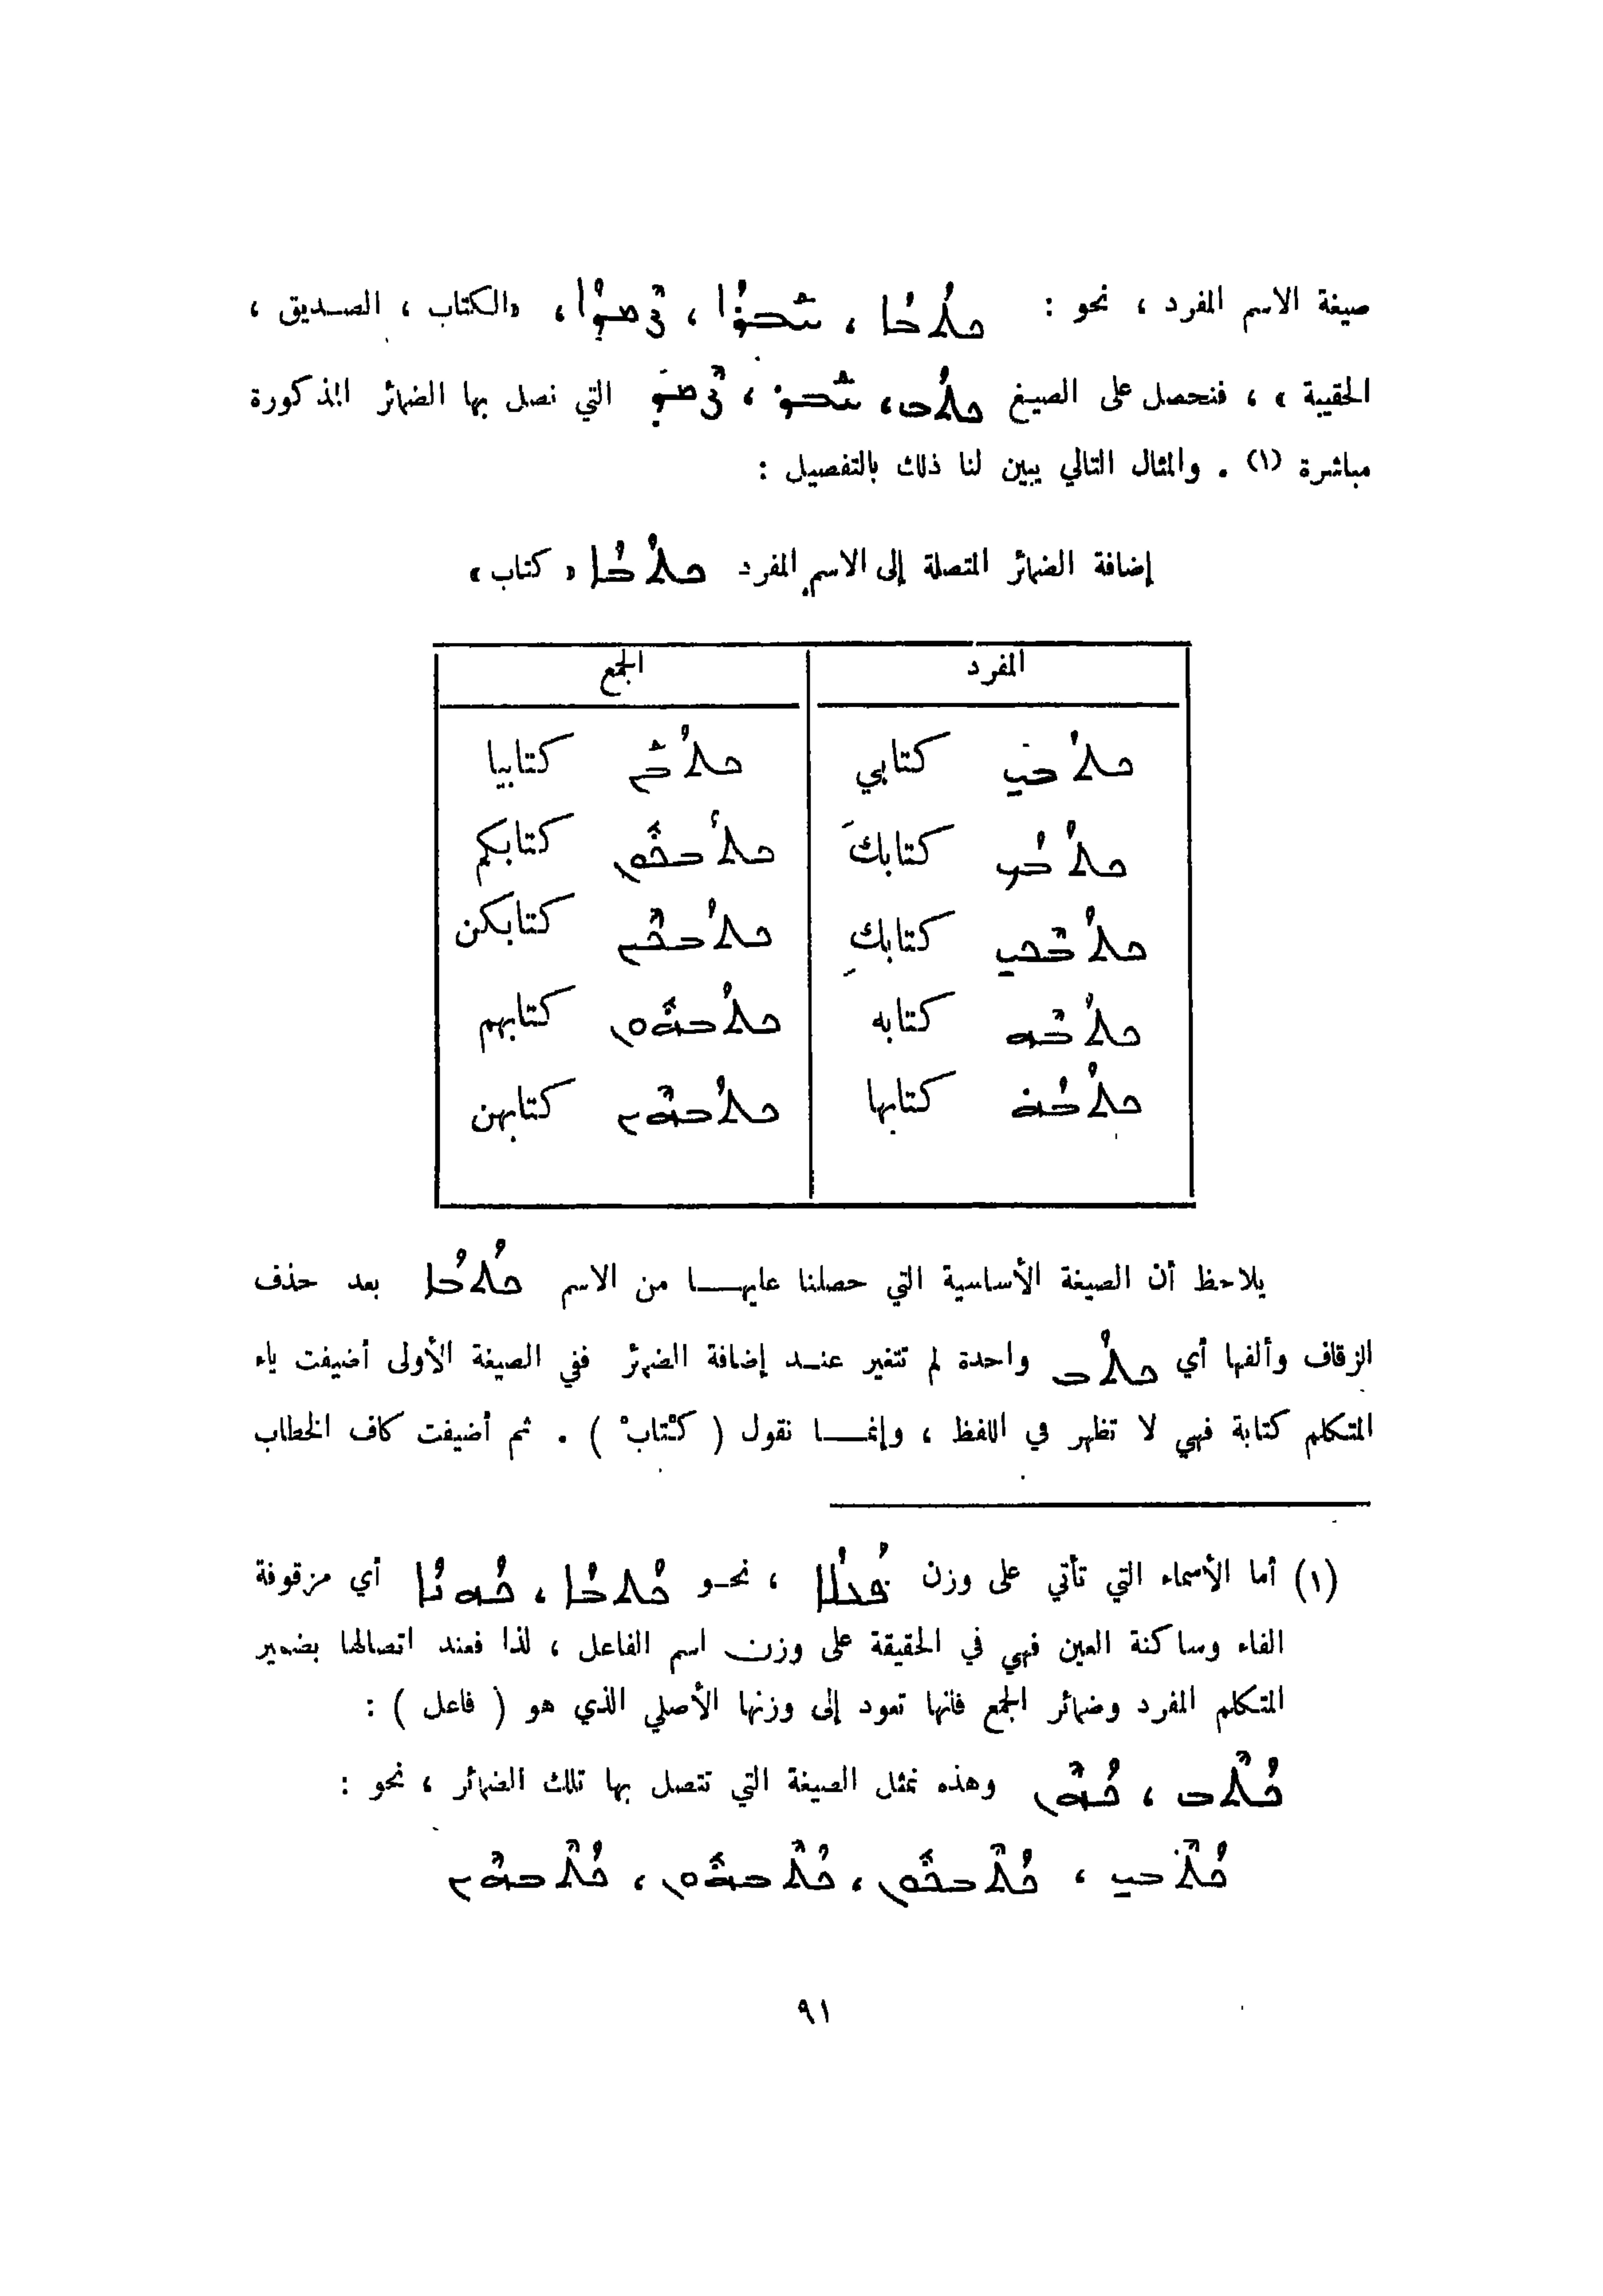 صيغة الاسم المفرد ، نحو : ܟܬܳܒܳܐ ، ܚܰܒܪܳܐ ، «الكتاب ، الصديق ،
الحقيبة » ، فنحصل على الصيغ ܟܬܳܒ، ܚܰܒܪ ، التي نصل بها الضمائر المذكورة
مباشرة (١) . والمثال التالي يبين لنا ذلك بالتفصيل :
إضافة الضمائر المتصلة إلى الاسم المفرد ܟܬܳܒܳܐ « كتاب »
المفرد الجمع
ܟܬܳܒܝ كتابي ܟܬܳܒܰܢ كتابيا
ܟܬܳܒܳܟ كتابكَ ܟܬܳܒܟܽܘܢ كتابكم
ܟܬܳܒܶܟܝ كتابكِ ܟܬܳܒܟܶܝܢ كتابكن
ܟܬܳܒܶܗ كتابه ܟܬܳܒܗܽܘܢ كتابهم
ܟܬܳܒܳܗ̇ كتابها ܟܬܳܒܗܶܝܢ كتابهن
يلاحظ أن الصيغة الأساسية التي حصلنا عليهـــا من الاسم ܟܬܳܒܳܐ بعد حذف
الزقاف وألفها أي ܟܬܳܒ واحدة لم تتغير عنـد إضافة الضمائر ففي الصيغة الأولى أضيفت ياء
المتكلم كتابة فهي لا تظهر في اللفظ ، وإنمـــا نقول ( كـْتابْ ) . ثم أضيفت كاف الخطاب
(١) أما الأسماء التي تأتي على وزن ܦܳܥܠܳܐ ، نحـو ܟܳܬܒܳܐ ، ܟܳܗܢܳܐ أي مزقوفة
الفاء وساكنة العين فهي في الحقيقة على وزن اسم الفاعل ، لذا فعند اتصالها بضمير
المتكلم المفرد وضمائر الجمع فانها تعود إلى وزنها الأصلي الذي هو ( فاعل ) :
ܟܳܬܶܒ ، ܟܳܗܶܢ وهذه تمثل الصيغة التي تتصل بها تلك الضمائر ، نحو :
ܟܳܬܶܒܝ ، ܟܳܬܶܒܟܽܘܢ ، ܟܳܬܶܒܗܽܘܢ ، ܟܳܬܶܒܗܶܝܢ
٩١